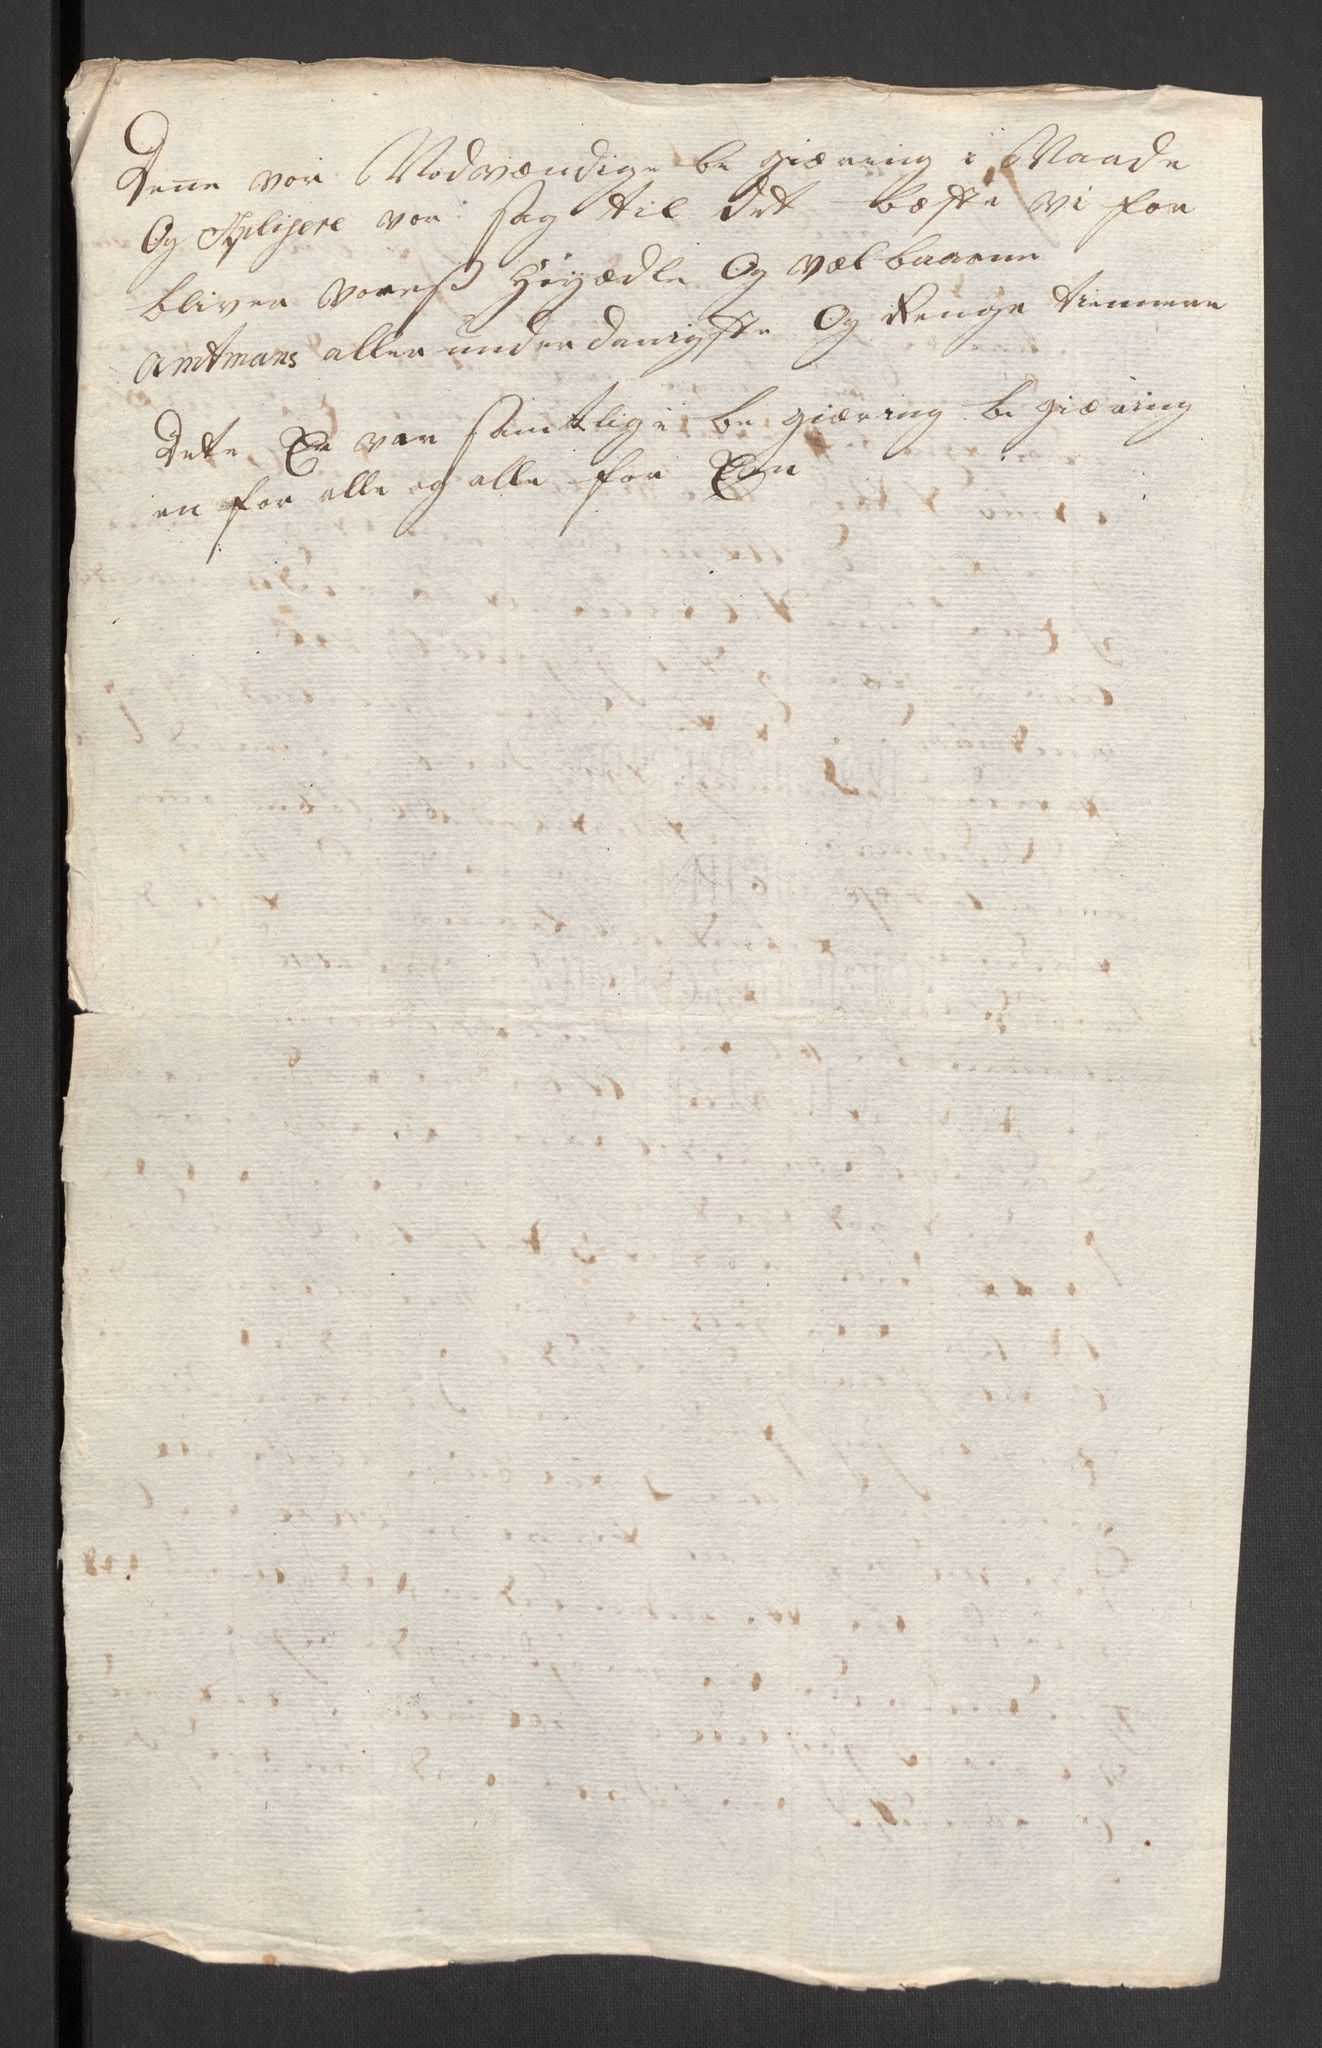 Dene vor Nodvændige be giæring i Naade
Og Aplisere vor sag til det bæste vi for
bliver voreß Höyædle Og velbaarne
Amtmans aller underdanigste Og Renge tiennere
Dete Er vor samtlige be giæring be giæring
en for alle og alle for Een